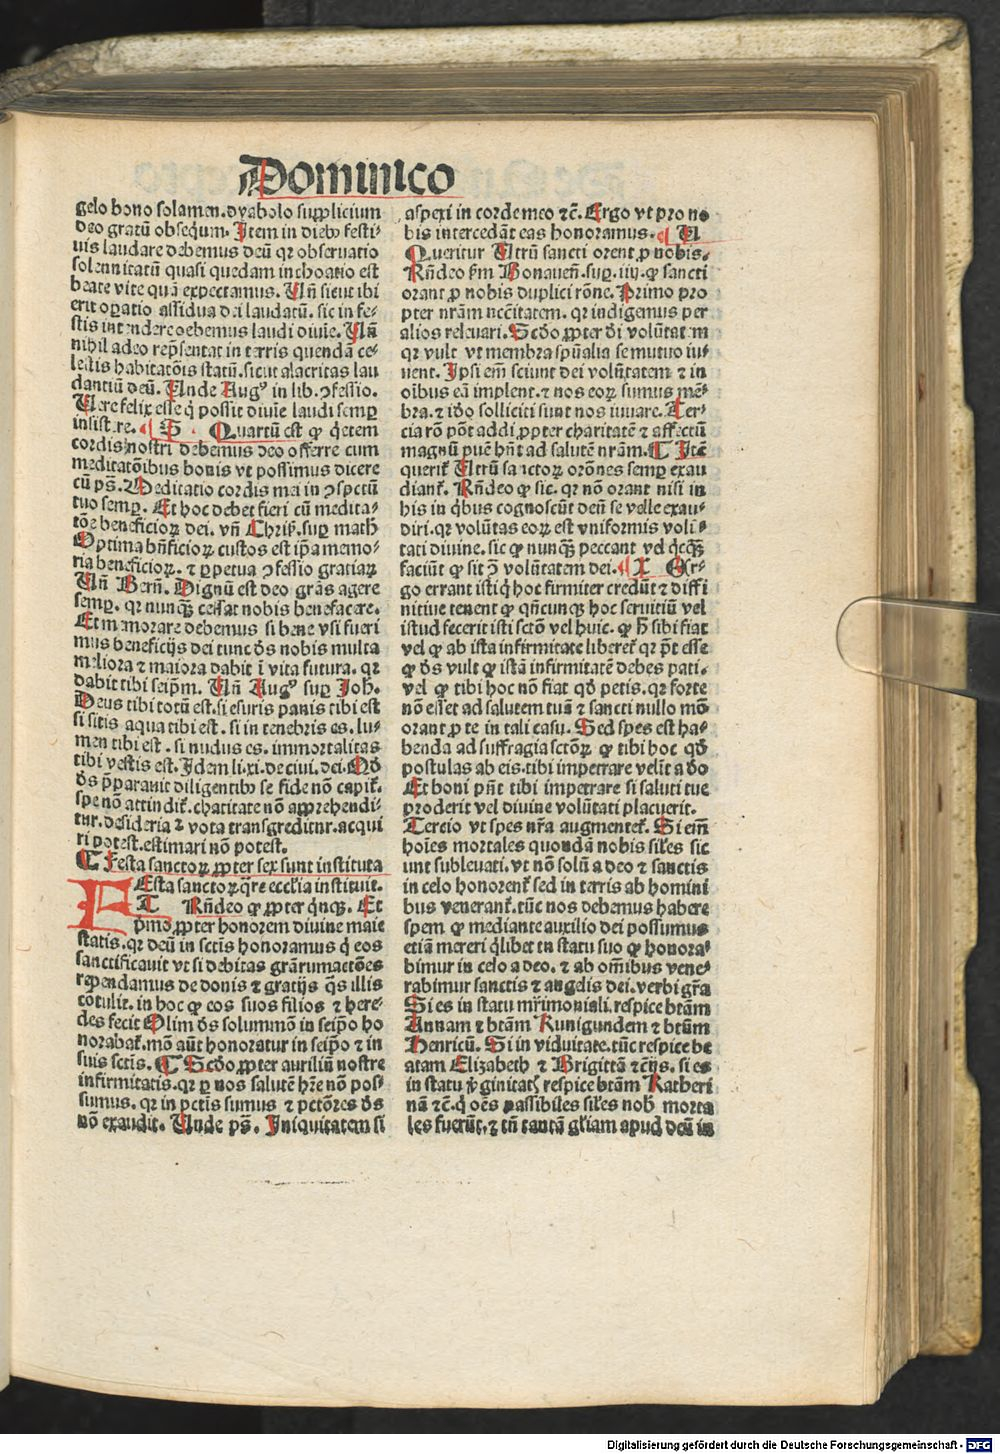 Dominico
gelo bono solamen. dyabolo supplicium
deo gratū obsequm. Item in dieb9 festi⸗
uis laudare debemus deū qꝛ obseruatio
solennitatū quasi quedam inchoatio est
beate vite quā expectamus. Uñ sicut ibi
erit oꝑatio assidua dei laudatiū. sic in fe⸗
stis intendere debemus laudi diuīe. Uñ
nihil adeo rep̄sentat in terris quendā ce⸗
lestis habitatōis statū. sicut alacritas lau
dantiū deū. Unde Augꝰ in lib. ꝯfessio.
Uere felix esse q̇ possit diuīe laudi semꝑ
insistere. S Quartū est ꝙ q̇etem
cordis nostri debemus deo offerre cum
meditatōibus bonis vt possimus dicere
cū ps̄. Meditatio cordis mei in ꝯspctū
tuo semꝑ. Et hoc debet fieri cū medita⸗
tōe beneficioꝝ dei. vñ Chriſ. suꝑ math̄
Optima bn̄ficioꝝ custos est ip̄a memo⸗
ria beneficioꝝ. ⁊ ꝑpetua ꝯfessio gratiaꝝ
Uñ Bern̄. Dignū est deo grās agere
semꝑ. qꝛ nunqꝫ cessat nobis benefacere.
Et memorare debemus si bene vsi fueri
mus beneficijs dei tunc d̄s nobis multa
meliora ⁊ maiora dabit ī vita futura. qꝛ
dabit tibi seip̄m. Uñ Augꝰ suꝑ Joh̄.
Deus tibi totū est. si esuris panis tibi est
si sitis aqua tibi est. si in tenebris es. lu⸗
men tibi est. si nudus es. immortalitas
tibi vestis est. Idem li. xi. de ciui. dei. Qđ
d̄s p̄parauit diligentib9 se fide nō capit̄.
spe nō attindit̄. charitate nō apprehendi⸗
tur. desideria ⁊ vota transgreditur. acqui
ri potest. estimari nō potest.
¶ Festa sanctoꝝ ꝓpter sex sunt instituta
FEsta sanctoꝝ q̄re eccl̄ia instituit.
T Rñdeo ꝙ ꝓpter q̇nqꝫ. Et
p̄mo ꝓpter honorem diuine maie
statis. qꝛ deū in sctīs honoramus q̇ eos
sanctificauit vt si debitas grārumactōes
rependamus de donis ⁊ gratijs q̄s illis
cōtulit. in hoc ꝙ eos suos filios ⁊ here⸗
des fecit Olim d̄s solummō in seip̄o ho
norabat̄. mō aūt honoratur in seip̄o ⁊ in
suis sctīs. ¶ Scđo ꝓpter auxiliū nostre
infirmitatis. qꝛ ꝑ nos salutē hr̄e nō pos⸗
sumus. qꝛ in pctīs sumus ⁊ pctōres d̄s
nō exaudit. Unde ps̄. Iniquitatem si
aspexi in corde meo ⁊c̄. Ergo vt pro no
bis intercedāt eas honoramus. U
Queritur Utrū sancti orent ꝓ nobis.
Rñdeo fm̄ Bonauen̄. suꝑ. iiij. ꝙ sancti
orant ꝓ nobis duplici rōne. Primo pro
pter nr̄am nec̄itatem. qꝛ indigemus per
alios releuari. Scđo ꝓpter di volūtatem
qꝛ vult vt membra spūalia se mutuo iu⸗
uent. Ipsi em̄ sciunt dei volūtatem ⁊ in
oībus eā implent. ⁊ nos eoꝝ sumus mē⸗
bra. ⁊ iđo solliciti sunt nos iuuare. Ter⸗
cia rō pōt addi ꝓpter charitatē ⁊ affectū
magnū quē hn̄t ad salutē nr̄am. ¶ Itē
querit̄ Utrū sanctoꝝ orōnes semꝑ exau
diant̄. Rñdeo ꝙ sic. qꝛ nō orant nisi in
his in q̇bus cognoscūt deū se velle exau⸗
diri. qꝛ volūtas eoꝝ est vniformis volū⸗
tati diuine. sic ꝙ nunqꝫ peccant vel q̇cqꝫ
faciūt ꝙ sit ꝯ volūtatem dei. X Er⸗
go errant isti q̇ hoc firmiter credūt ⁊ diffi
nitiue tenent ꝙ qn̄cunqꝫ hoc seruitiū vel
istud fecerit isti sctō vel huic. ꝙ h̄ sibi fiat
vel ꝙ ab ista infirmitate liberet̄ qꝛ p̄t esse
ꝙ d̄s vult ꝙ istā infirmitatē debes pati.
vel ꝙ tibi hoc nō fiat qđ petis. qꝛ forte
nō esset ad salutem tuā ⁊ sancti nullo mō
orant ꝓ te in tali casu. Sed spes est ha⸗
benda ad suffragia sctōꝝ ꝙ tibi hoc qđ
postulas ab eis. tibi impetrare velīt a đo
Et boni pn̄t tibi impetrare si saluti tue
proderit vel diuine volūtati placuerit.
Tercio vt spes nr̄a augmentet̄. Si em̄
hoīes mortales quondā nobis siłes sic
sunt subleuati. vt nō solū a deo ⁊ sanctis
in celo honorent̄ sed in terris ab homini
bus venerant̄. tūc nos debemus habere
spem ꝙ mediante auxilio dei possumus
etiā mereri q̇libet in statu suo ꝙ honora⸗
bimur in celo a deo. ⁊ ab om̄ibus vene⸗
rabimur sanctis ⁊ angelis dei. verbi gr̄a
Si es in statu mr̄imoniali. respice btām
Annam ⁊ btām Kunigundem ⁊ btūm
Henricū. Si in viduitate. tūc respice be
atam Elizabeth ⁊ Brigittā ⁊c̄ijs. si es
in statu ꝟginitatꝭ respice btām Katheri
nā ⁊c̄. q̇ oēs passibiles siłes nob̄ morta
les fuerūt. ⁊ tn̄ tantā gl̄iam apud deū in
Digitalisierung gefördert durch die Deutsche Forschungsgemeinschaft - DFG